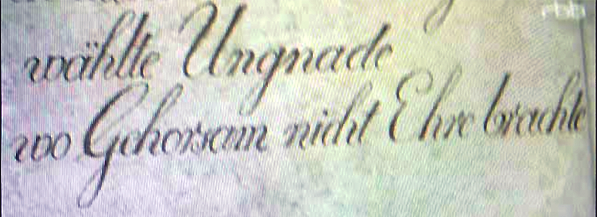 rbb
wählte Ungnade
wo Gehorsam nicht Ehre brachte